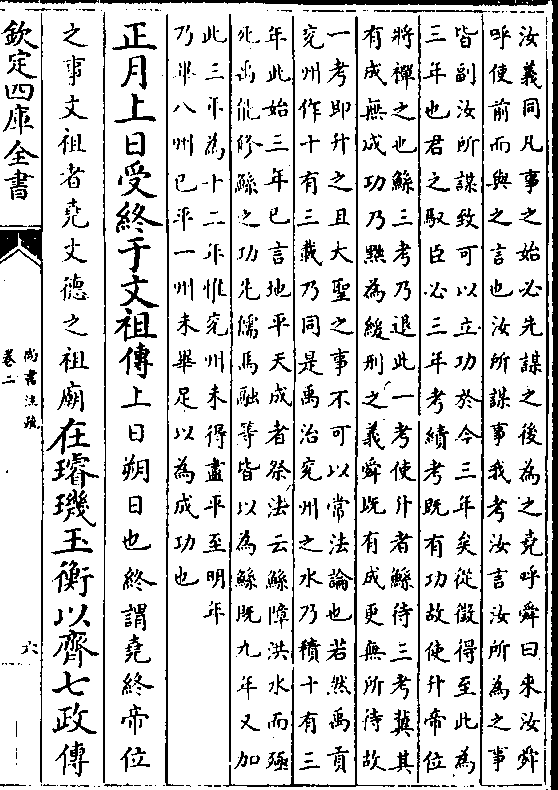 汝義同凡事之始必先謀之後為之堯呼舜曰來汝舜
呼使前而與之言也汝所謀事我考汝言汝所為之事
皆副汝所謀致可以立功於今三年矣從徵得至此為
三年也君之馭臣必三年考績考既有功故使升帝位
將禪之也鯀三考乃退此一考使升者鯀待三考冀其
有成無成功乃黜為緩刑之義舜既有成更無所待故
一考即升之且大聖之事不可以常法論也若然禹貢
兖州作十有三載乃同是禹治兖州之水乃積十有三
年此始三年已言地平天成者祭法云鯀障洪水而殛
死禹能修鯀之功先儒馬融等皆以為鯀既九年又加
此三年為十二年惟兖州未得盡平至明年
乃畢八州已平一州未畢足以為成功也
正月上日受終于文祖傳上日朔日也終謂堯終帝位
之事文祖者堯文德之祖廟在璿璣玉衡以齊七政傳
欽定四庫全書
尚書注疏
卷二
六